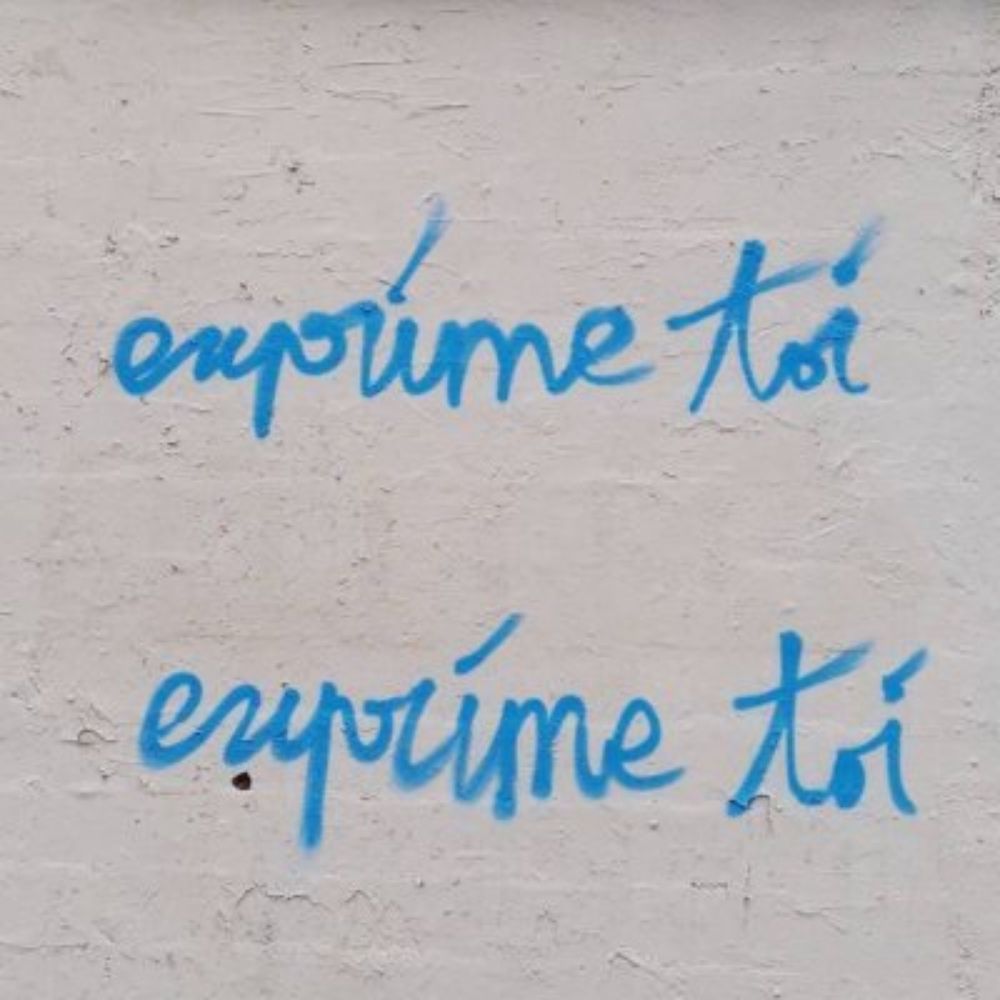 exprime toi
exprime toi